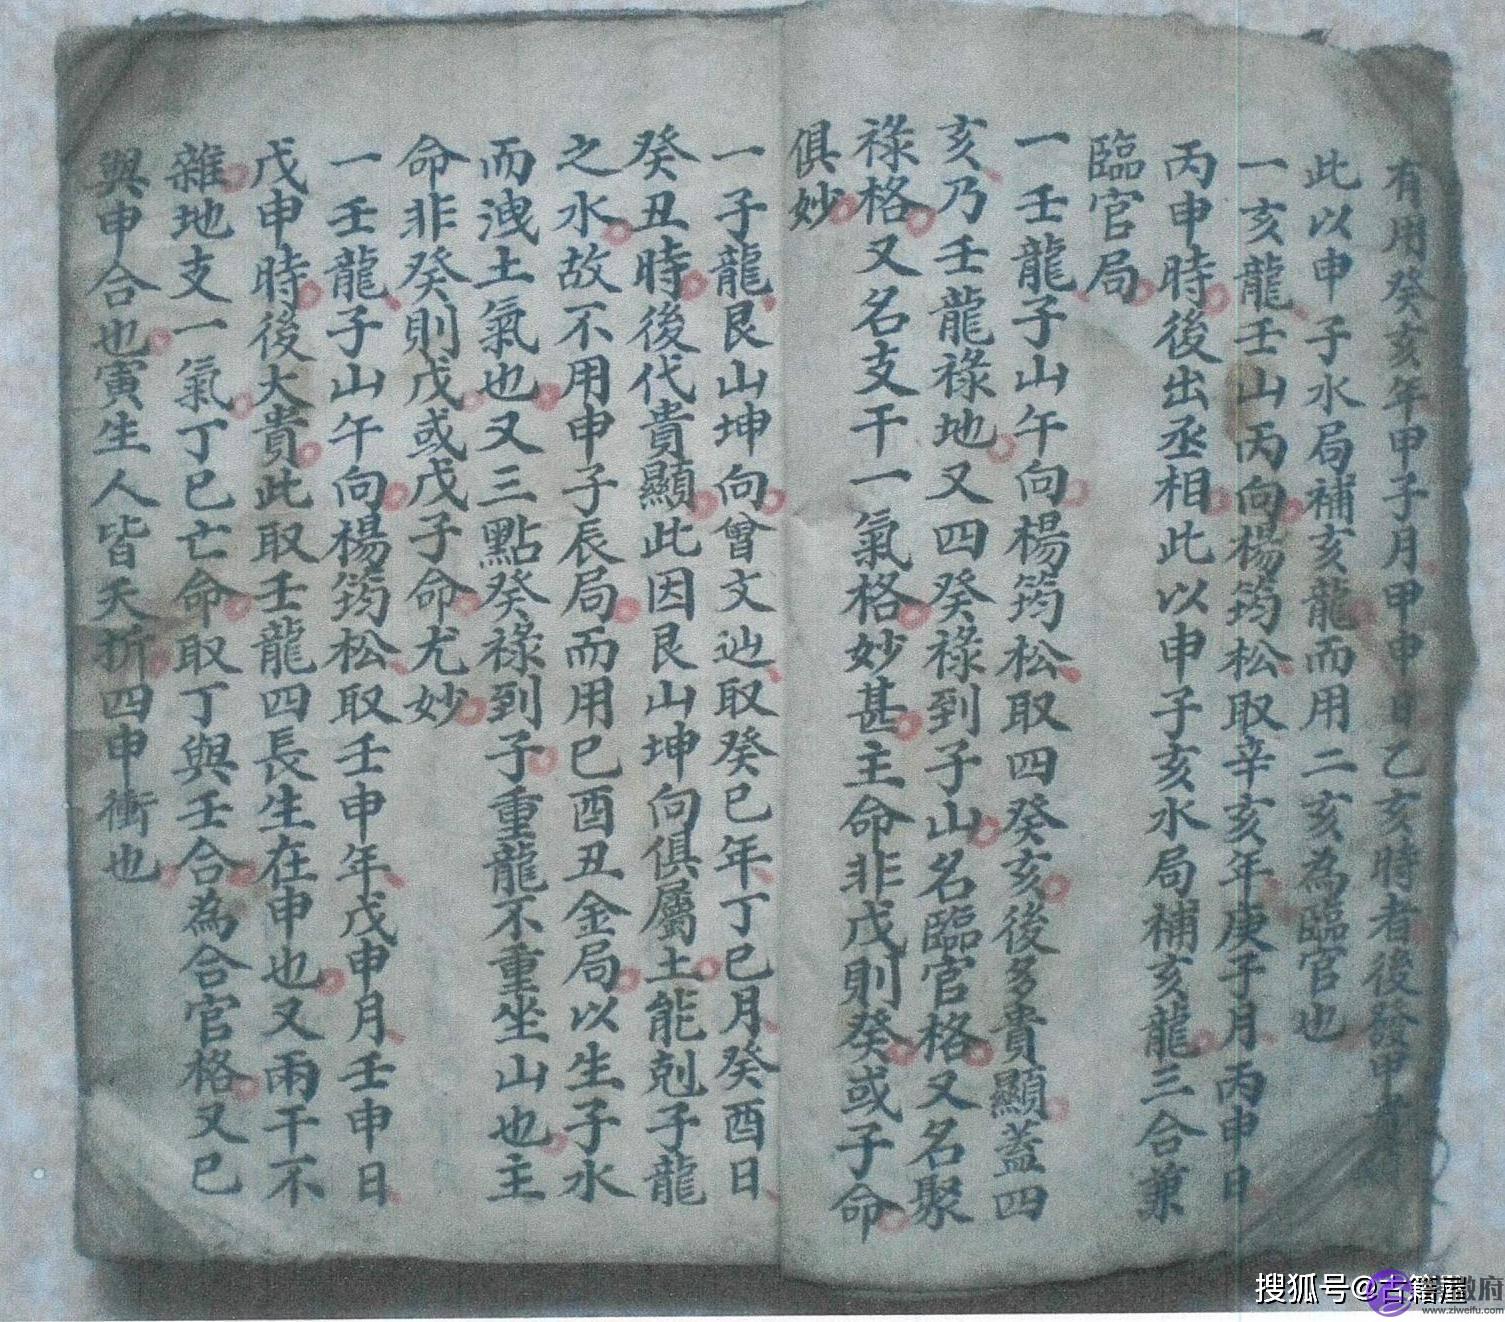 有用癸亥年甲子月甲申日乙亥時者後發甲
此以申子水局補亥龍而用二亥為臨官也
一亥龍壬山丙向楊筠松取辛亥年庚子月丙申日
丙申時後出丞相此以申子亥水局補亥龍三合兼
臨官局
一壬龍子山午向楊筠松取四癸亥後多貴顯蓋四
亥乃壬龍祿地又四癸祿到子山名臨官格又名聚
祿格又名支干一氣格妙甚主命非戊則癸或子命
俱妙
一子龍艮山坤向曾文辿取癸巳年丁巳月癸酉日
癸丑時後代貴顯此因艮山坤向俱屬土能剋子龍
之水故不用申子辰局而用巳酉丑金局以生子水
而洩土氣也又三點癸祿到子重龍不重坐山也主
命非癸則戊或戊子命尤妙
一壬龍子山午向楊筠松取壬申年戊申月壬申日
戊申時後大貴此取壬龍四長生在申也又兩干不
雜地支一氣丁巳亡命取丁與壬合為合官格又巳
與申合也寅生人皆夭折四申衝也
搜狐号@古籍屋
www.ziweifu.com